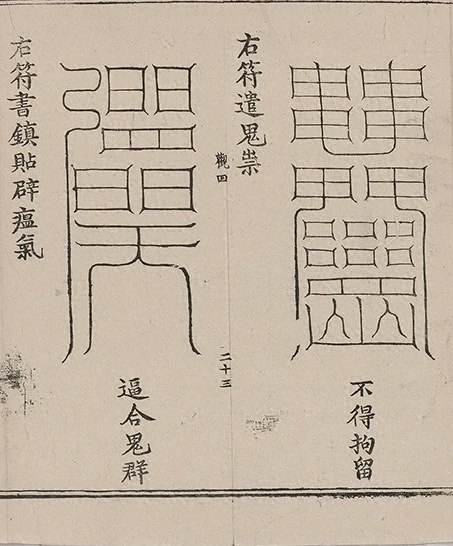 不得拘留
右符遣鬼祟
觀四
二十三
逼合鬼群
右符書鎮貼辟瘟氣